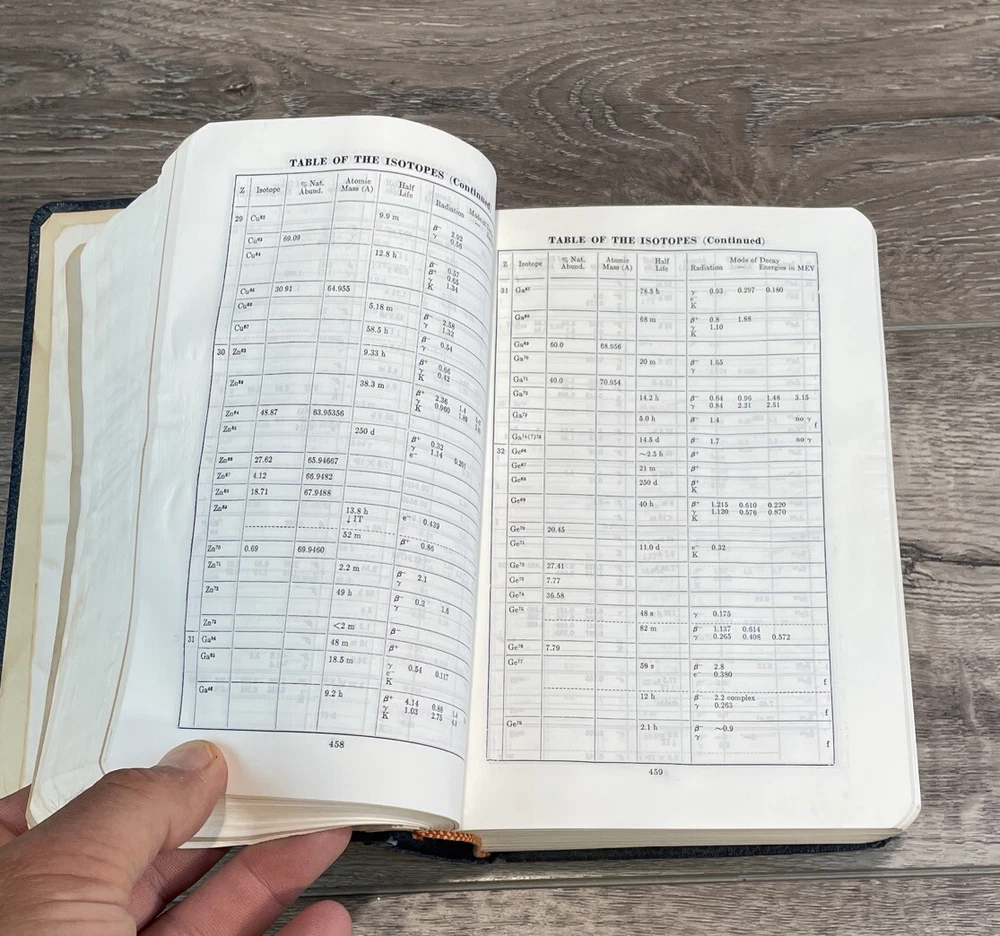 TABLE OF THE ISOTOPES (Continued
Z Isotope % Nat. Abund. Atomic Mass (A) Half Life Radiation
29 Cu⁶² 9.9 m β⁻ 2.92
γ 0.56
Cu⁶³ 69.09
Cu⁶⁴ 12.8 h β⁻ 0.57
β⁺ 0.65
γ 1.34
K
Cu⁶⁵ 30.91 64.955
Cu⁶⁶ 5.18 m β⁻ 2.58
γ 1.32
Cu⁶⁷ 58.5 h β⁻ 0.54
30 Zn⁶² 9.33 h β⁺ 0.66
γ 0.42
K
Zn⁶³ 38.3 m β⁺ 2.36 1.4
γ 0.960 1.89
K
Zn⁶⁴ 48.87 63.95356
Zn⁶⁵ 250 d β⁺ 0.32
γ 1.14
e⁻
Zn⁶⁶ 27.62 65.94667
Zn⁶⁷ 4.12 66.9482
Zn⁶⁸ 18.71 67.9488
Zn⁶⁹ 13.8 h e⁻ 0.439
↓ IT
52 m β⁺ 0.86
Zn⁷⁰ 0.69 69.9460
Zn⁷¹ 2.2 m β⁻ 2.1
γ
Zn⁷² 49 h β⁻ 0.3 1.6
γ
Zn⁷³ <2 m β⁻
31 Ga⁶⁴ 48 m β⁺
Ga⁶⁵ 18.5 m γ 0.54 0.117
e⁻
K
Ga⁶⁶ 9.2 h β⁺ 4.14 0.88 1.4
γ 1.03 2.75
K
458
TABLE OF THE ISOTOPES (Continued)
Z Isotope % Nat. Abund. Atomic Mass (A) Half Life Radiation Mode of Decay — Energies in MEV
31 Ga⁶⁷ 78.3 h γ 0.93 0.297 0.180
e⁻
K
Ga⁶⁸ 68 m β⁺ 0.8 1.88
γ 1.10
K
Ga⁶⁹ 60.0 68.956
Ga⁷⁰ 20 m β⁻ 1.65
γ
Ga⁷¹ 40.0 70.954
Ga⁷² 14.2 h β⁻ 0.64 0.96 1.48 3.15
γ 0.84 2.21 2.51
Ga⁷³ 5.0 h β⁻ 1.4 no γ
f
Ga⁷⁴(?)⁷⁶ 14.5 d β⁻ 1.7 no γ
32 Ge⁶⁶ ~2.5 h β⁺
Ge⁶⁷ 21 m β⁺
Ge⁶⁸ 250 d β⁺
K
Ge⁶⁹ 40 h β⁺ 1.215 0.610 0.220
γ 1.120 0.576 0.870
K
Ge⁷⁰ 20.45
Ge⁷¹ 11.0 d e⁻ 0.32
K
Ge⁷² 27.41
Ge⁷³ 7.77
Ge⁷⁴ 36.58
Ge⁷⁵ 48 s γ 0.175
82 m β⁻ 1.137 0.614
γ 0.265 0.408 0.572
Ge⁷⁶ 7.79
Ge⁷⁷ 59 s β⁻ 2.8
e⁻ 0.380
f
12 h β⁻ 2.2 complex
γ 0.263
f
Ge⁷⁸ 2.1 h β⁻ ~0.9
γ
f
459